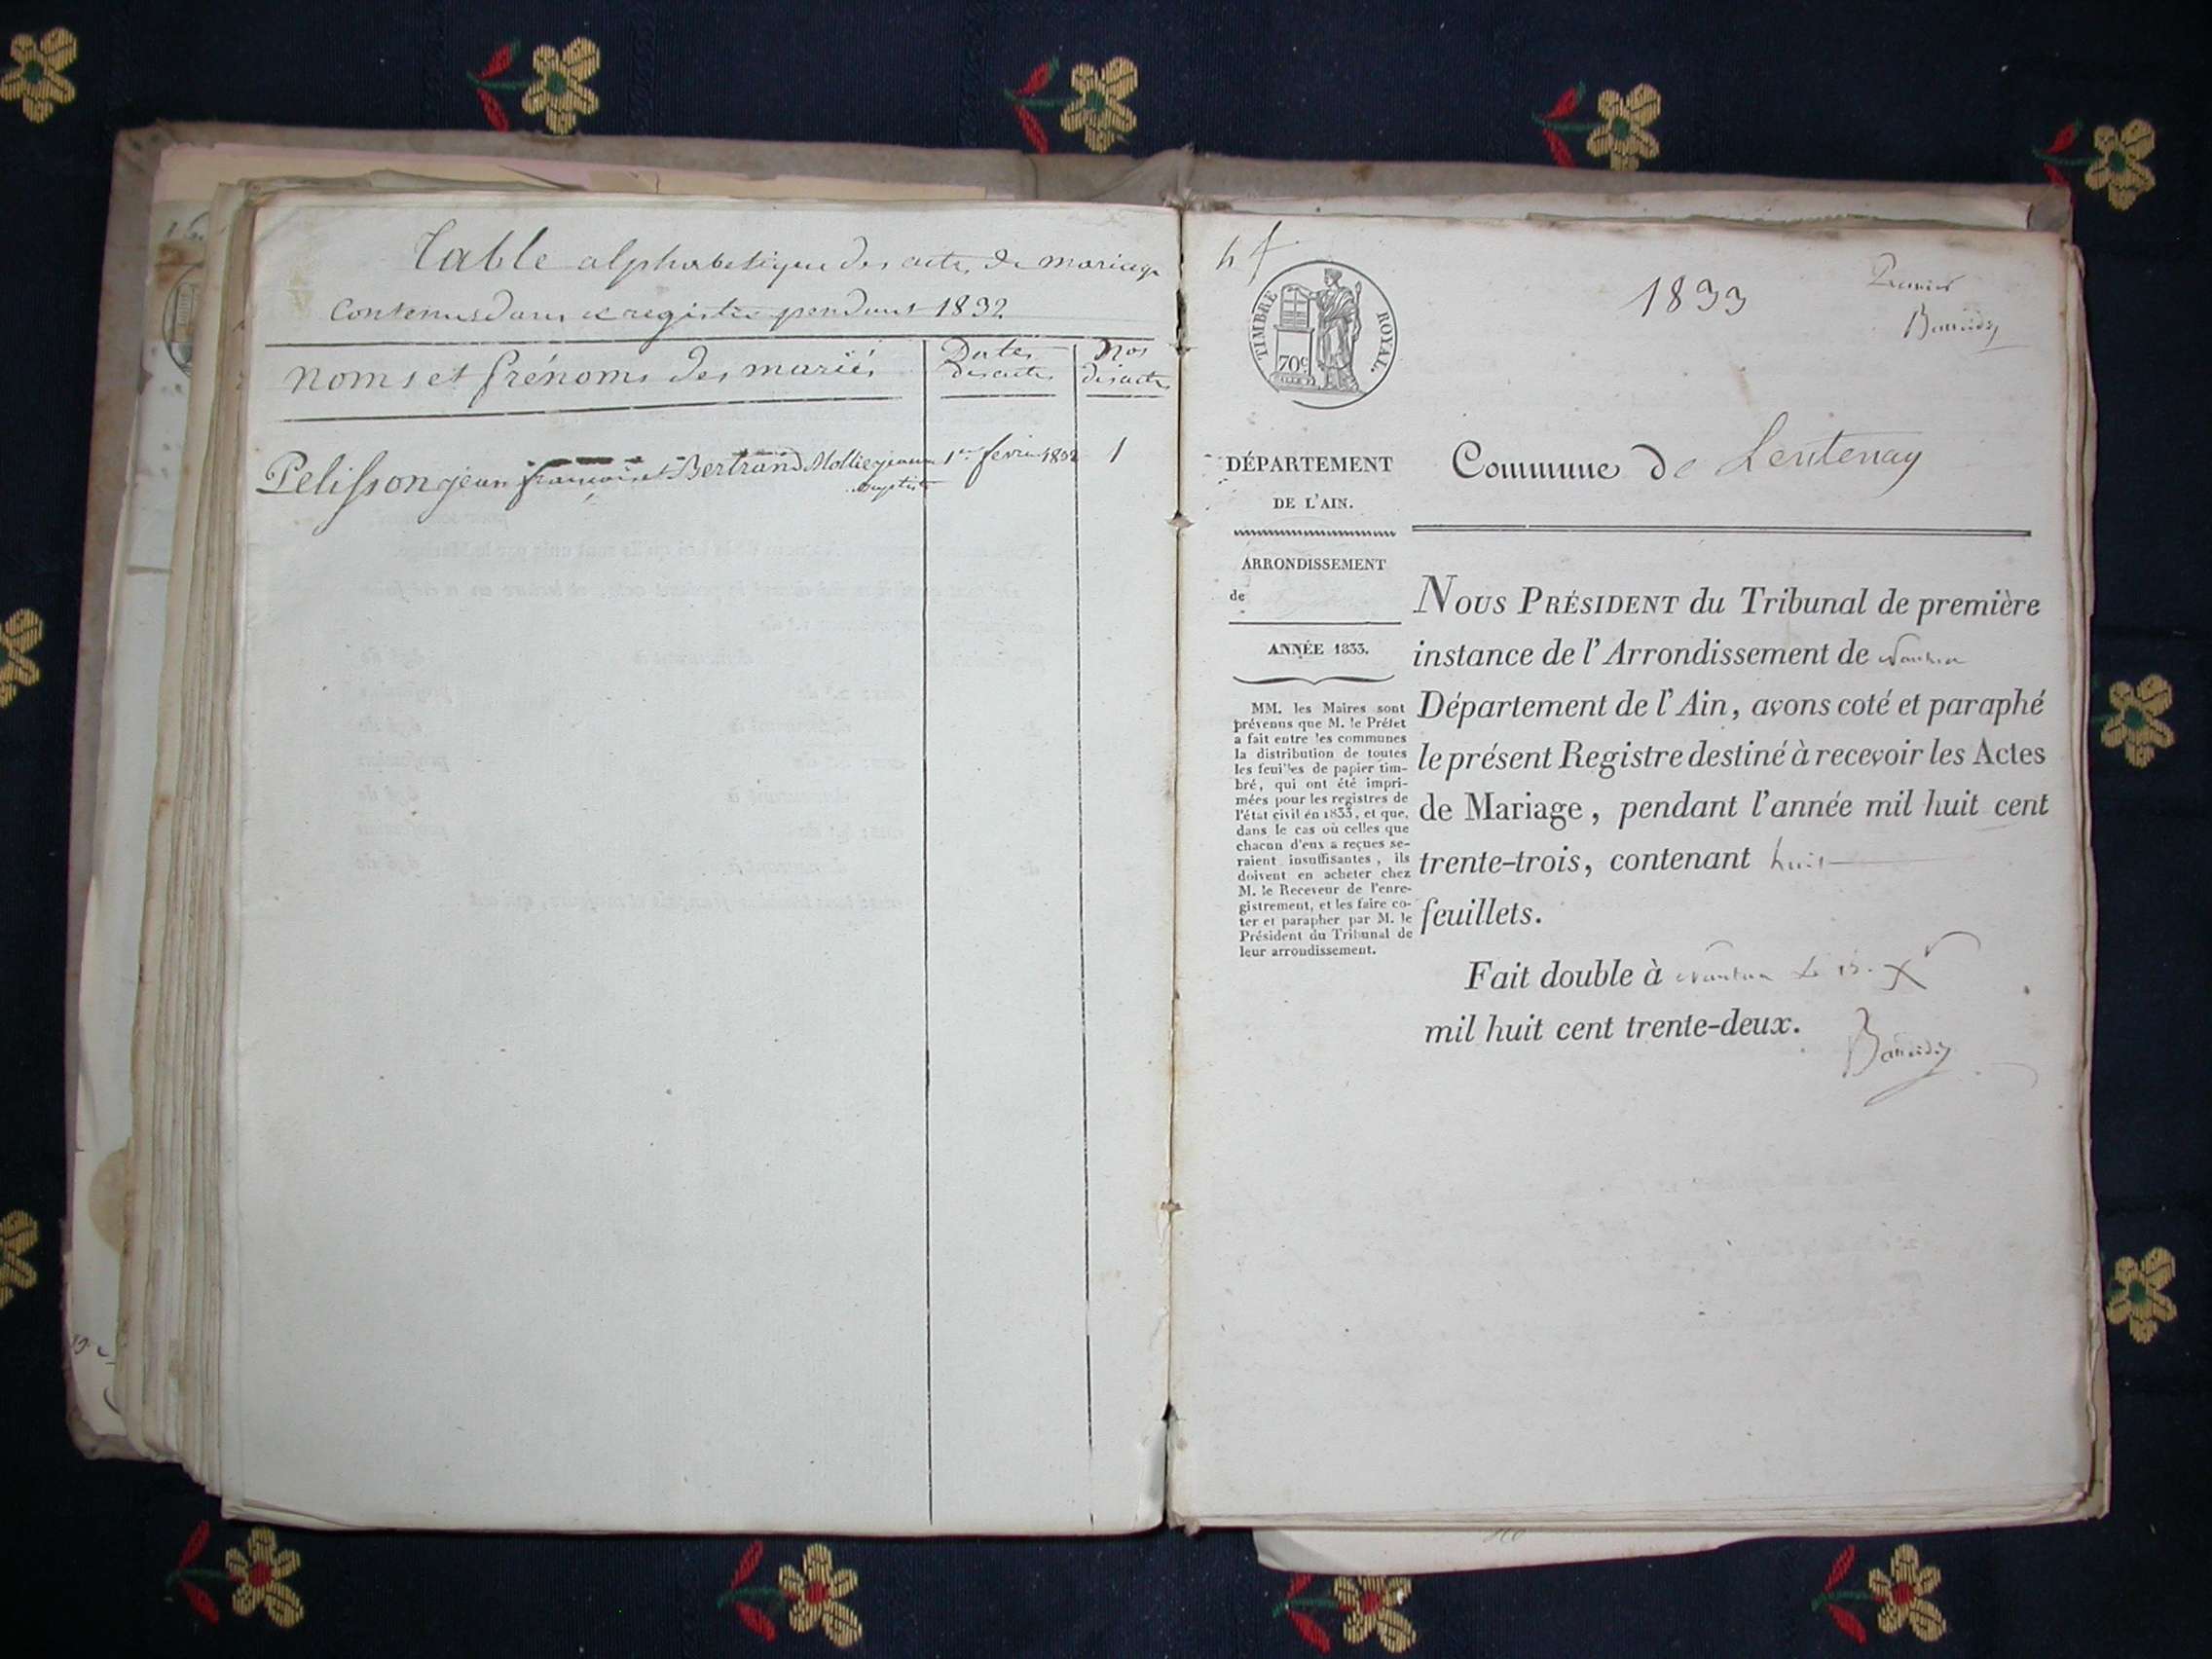 Table alphabetique des actes de mariage
Contenus dans ce registre pendant 1832
Noms et prénoms des mariés
Dates des actes
Nos des actes
Pelisson jean françois et Bertrand Mollie jeanne baptiste
1er févrie 1832
1
4 f
1833
Premier
TIMBRE ROYAL.
70c
DÉPARTEMENT
DE L'AIN.
Commune de Lentenay
ARRONDISSEMENT
de
ANNÉE 1833.
MM. les Maires sont
prévenus que M. le Préfet
a fait entre les communes
la distribution de toutes
les feuilles de papier tim-
bré, qui ont été impri-
mées pour les registres de
l'état civil en 1833, et que,
dans le cas où celles que
chacun d'eux a reçues se-
raient insuffisantes, ils
doivent en acheter chez
M. le Receveur de l'enre-
gistrement, et les faire co-
ter et parapher par M. le
Président du Tribunal de
leur arrondissement.
NOUS PRÉSIDENT du Tribunal de première
instance de l'Arrondissement de Nantua
Département de l'Ain, avons coté et paraphé
le présent Registre destiné à recevoir les Actes
de Mariage, pendant l'année mil huit cent
trente-trois, contenant huit
feuillets.
Fait double à Nantua Le 15. Xr
mil huit cent trente-deux.